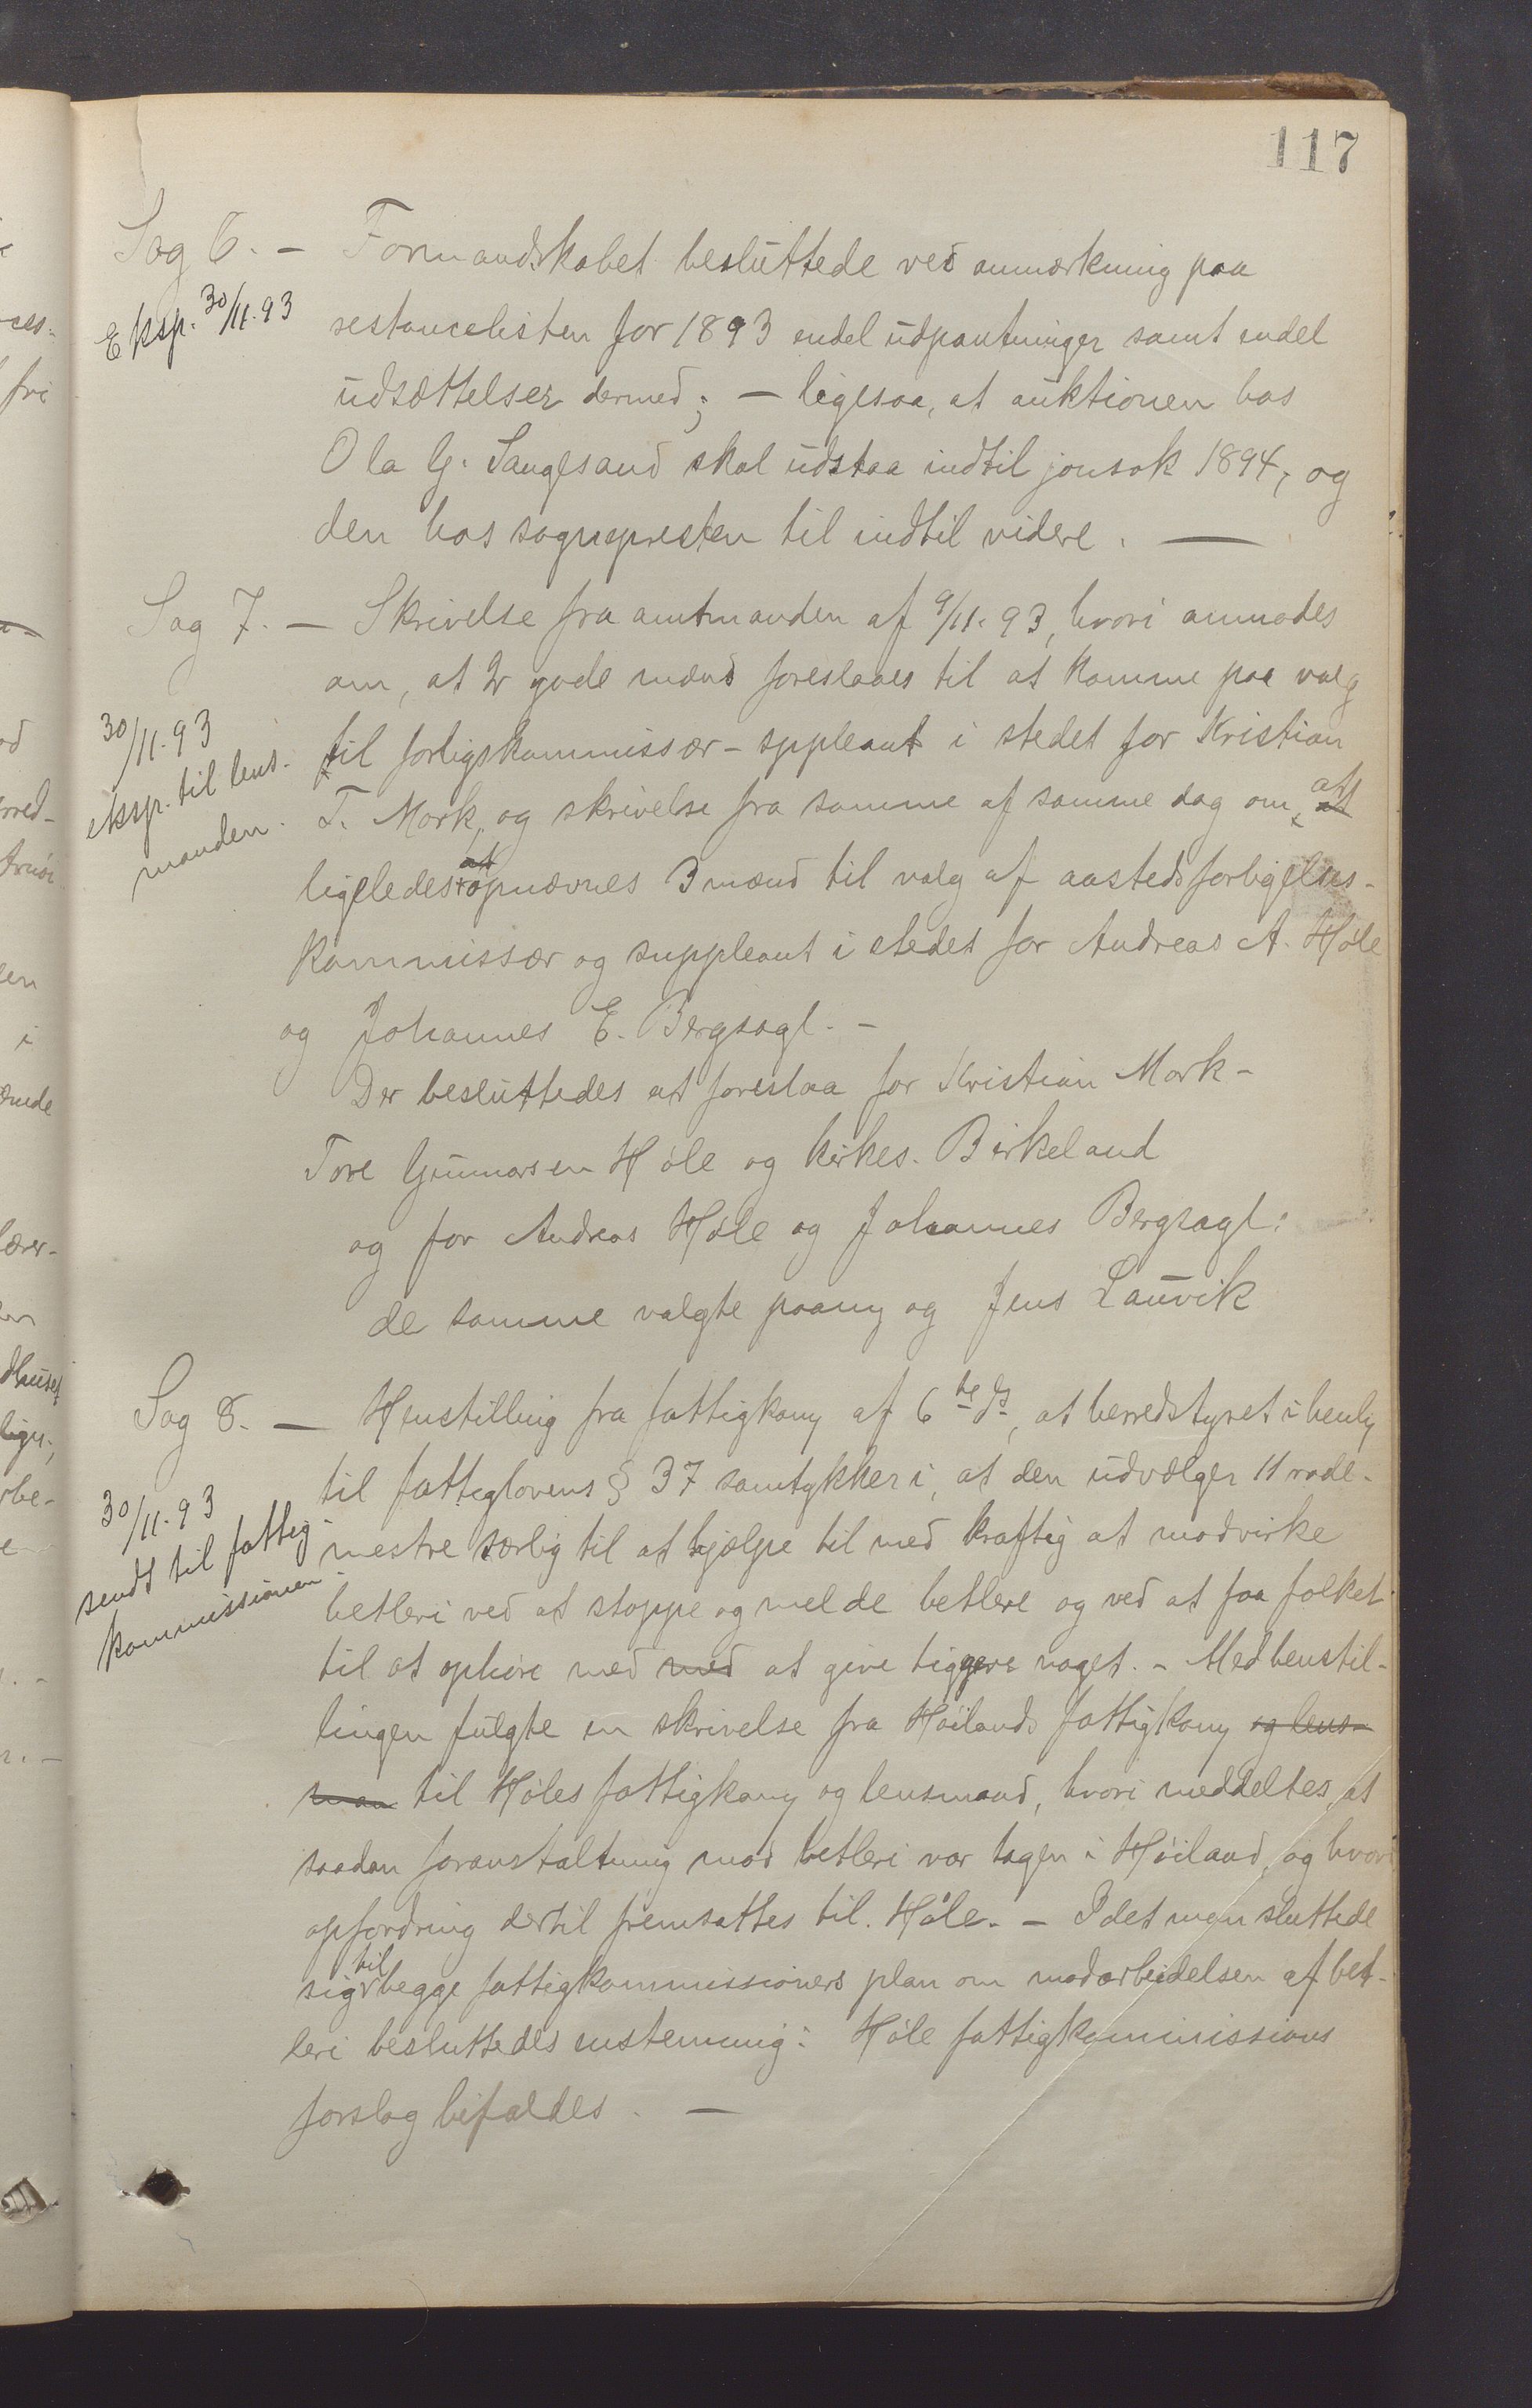 117
Sag 6. — Formandskabet besluttede ved anmærkning paa
Eksp. 30/11.93
restancelisten for 1893 endel udpantninger samt endel
udsættelser dermed; — ligesaa, at auktionen hos
Ola G. Sangesand skal udstaa indtil jonsok 1894, og
den hos sognepresten til indtil videre. —
Sag 7. — Skrivelse fra amtmanden af 9/11.93, hvori anmodes
om, at 2 gode mænd foreslaaes til at komme paa valg
30/11.93
eksp. til lens-
manden.
til forligskommissær-sppleant i stedet for Kristian
T. Mork, og skrivelse fra samme af samme dag om, at at
ligeledes at opnævnes 3 mænd til valg af aastedsforligelses-
kommissær og suppleant i stedet for Andreas A. Høle
og Johannes E. Bergsagl. —
Der besluttedes at foreslaa for Kristian Mork —
Tore Gunnarsen Høle og kirkes. Birkeland
og for Andreas Høle og Johannes Bergsagl:
de samme valgte paany og Jens Lauvik
Sag 8. — Henstilling fra fattigkom af 6te ds, at herredstyret i henh
til fattiglovens § 37 samtykker i, at den udvælger 11 rode-
30/11.93
sendt til fattig-
kommissionen.
mestre særlig til at hjælpe til med kraftig at modvirke
betleri ved at stoppe og melde betlere og ved at faa folket
til at ophøre med med at give tiggere noget. — Med henstil-
lingen fulgte en skrivelse fra Høilands fattigkom og lens-
man til Høles fattigkom og lensmand, hvori meddeltes, at
saadan foranstaltning mod betleri var tagen i Høiland, og hvori
opfordring dertil fremsattes til Høle. — Idet man sluttede
sig til begge fattigkommissioners plan om modarbeidelsen af bet-
leri besluttedes enstemmig: Høle fattigkommissions
forslag bifaldes. —